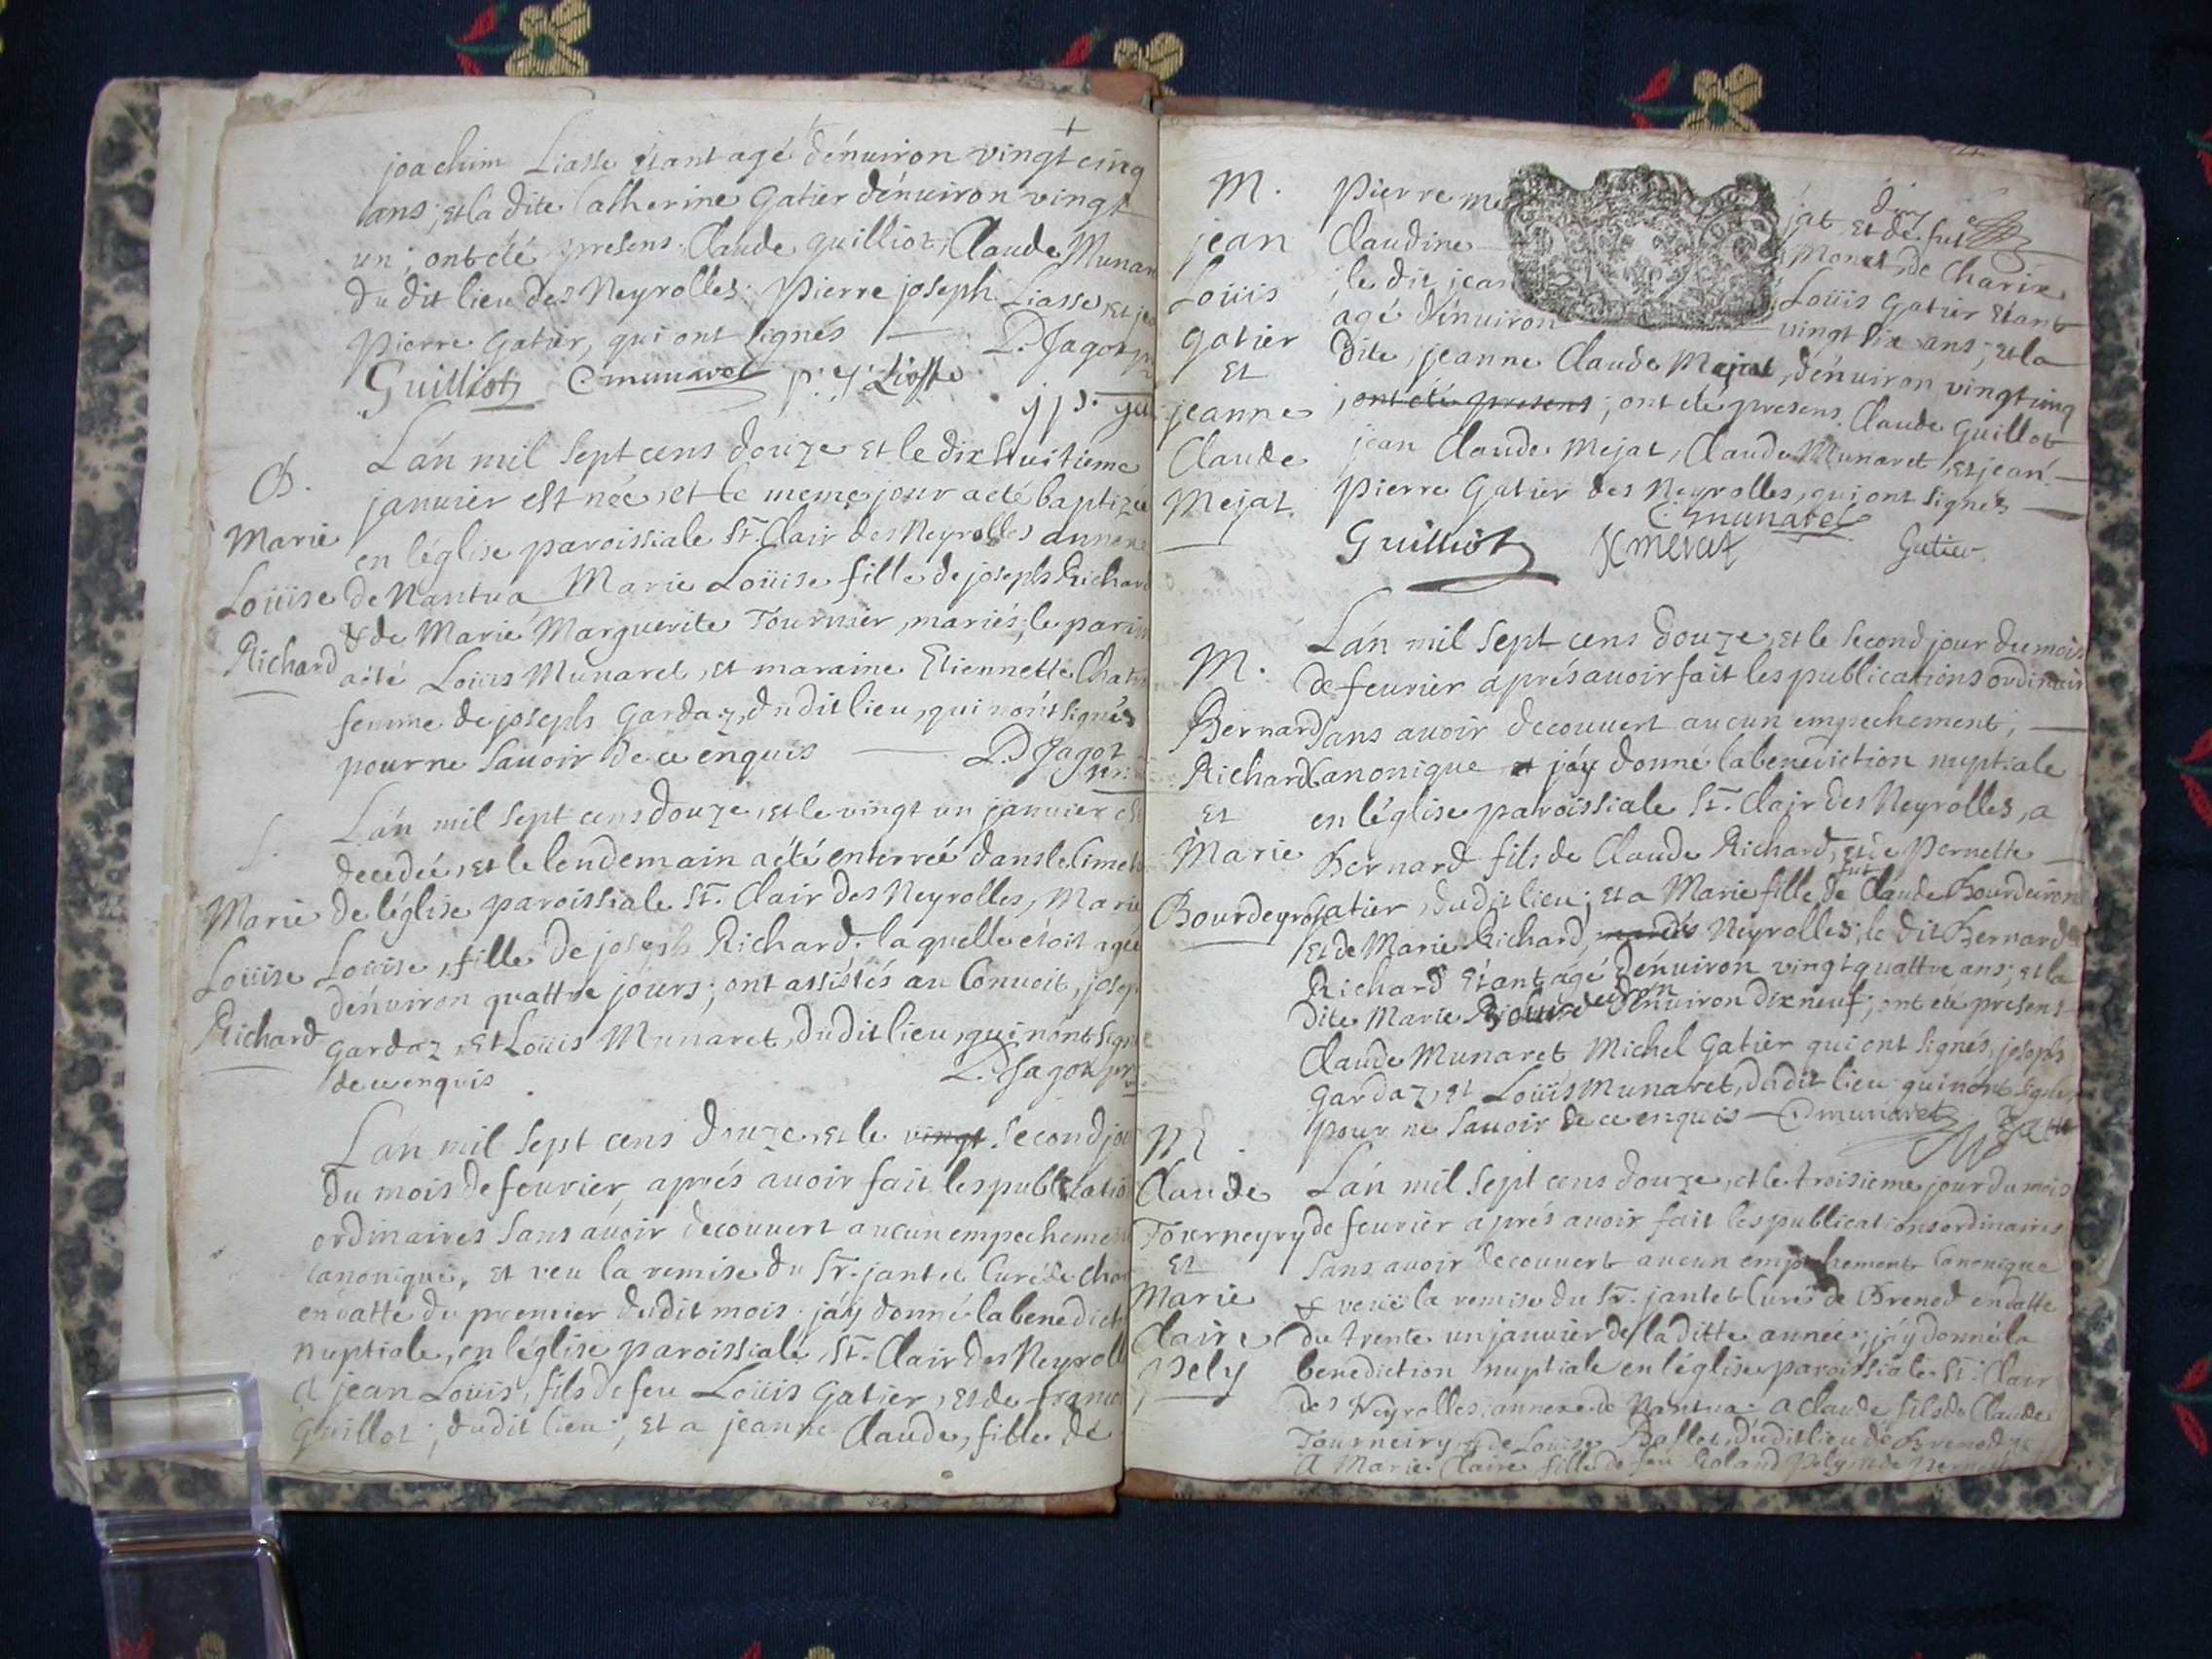 joachim Liasse étant agé d'énuiron vingt cinq
ans; et la dite Catherine Gatier d'énuiron vingt
un; ont été presens Claude Guilliot, Claude Munar
du dit lieu des Neyrolles: Pierre joseph Liasse, et je
Pierre Gatier, qui ont signés D. Jagot
Guilliot C munaret p: J: Liasse
B.
Marie
Loüise
Richard
L'án mil sept cens douze et le dix huitieme
januier est née, et le meme jour a été baptizée
en l'église paroissiale St. Clair des Neyrolles annexe
de Nantua Marie Loüise fille de joseph Richard
& de Marie Marguerite Tournier, mariés, le parin
a été Loüis Munaret, et maraine Etiennette Chat
femme de joseph Gardaz, du dit lieu, qui n'ont signés
pour ne sauoir de ce enquis D Jagot
S.
Marie
Loüise
Richard
L'án mil sept cens douze, et le vingt un januier
decedée, et le lendemain a été enterreé dans le Cimet
de l'église paroissiale St. Clair des Neyrolles, Marie
Loüise, fille de joseph Richard, la quelle étoit agée
d'énuiron quattre jours; ont assistés au Conuoit, josep
Gardaz, et Loüis Munaret, du dit lieu, qui n'ont signé
de ce enquis D. Jagot
L'án mil sept cens douze, et le vingt second jou
du mois de feurier aprés auoir fait les publicatio
ordinaires sans auoir decouuert aucun empechemen
canonique, et veu la remise du Sr. jantet Curé de Char
en datte du premier du dit mois: j'áy donné la benedict
nuptiale, en l'église paroissiale, St. Clair des Neyroll
a jean Loüis, fils de feu Loüis Gatier, et de franco
Guillot; du dit lieu; et a jeanne Claude, fille de
M.
jean
Loüis
Gatier
et
jeanne
Claude
Mejat
Pierre Me jat, et de fut
Claudine Monet, de Charix
le dit jean Loüis Gatier étant
agé d'énuiron vingt six ans; et la
dite, jeanne Claude Mejat, d'énuiron vingt cinq
ont été presens; ont été presens Claude Guillot
jean Claude Mejat, Claude Munaret, et jean
Pierre Gatier des Neyrolles, qui ont signés
C munaret
Guilliot Gatier
M.
Bernard
Richard
et
Marie
Bourdeyron
L'án mil sept cens douze, et le second jour du mois
de feurier aprés auoir fait les publications ordinair
sans auoir decouuert aucun empechement,
Canonique j'áy donné la benediction nuptiale
en l'église paroissiale St. Clair des Neyrolles, a
Bernard fils de Claude Richard, et de Pernette
Gatier, du dit lieu; et a Marie fille de fut Claude Bourdeiron
et de Marie Richard, mariés Neyrolles; le dit Bernard
Richard étant agé d'énuiron vingt quattre ans; et la
dite Marie d'énuiron dix neuf; ont été presens
Claude Munaret Michel Gatier qui ont signés, joseph
Gardaz, et Loüis Munaret, du dit lieu qui n'ont signé
pour ne sauoir de ce enquis C munaret
M
Claude
Tourneyry
et
Marie
Claire
Pely
L'án mil sept cens douze, et le troisieme jour du mois
de feurier aprés auoir fait les publications ordinaires
sans auoir decouuert aucun empechement Canonique
& veüe la remise du Sr. jantet Curé de Brenod en datte
du trente un januier de la ditte année; j'áy donné la
benediction nuptiale en l'église paroissiale St. Clair
des Neyrolles, annexe de Nantua: a Claude fils de Claude
Tourneiry, et de Loüise Baflet, du dit lieu de Brenod et
a Marie Claire fille de feu Roland Pely et de